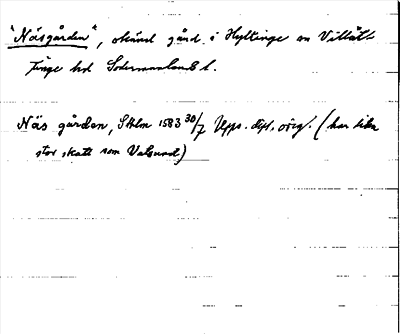 "Näsgården", okänd gård i Hyltinge sn Villåt-
tinge hd Södermanlands l.
Näs gården, Sthlm 1583 30/7 Upps. dipl. orig. (har lika
stor skatt som Valsund)